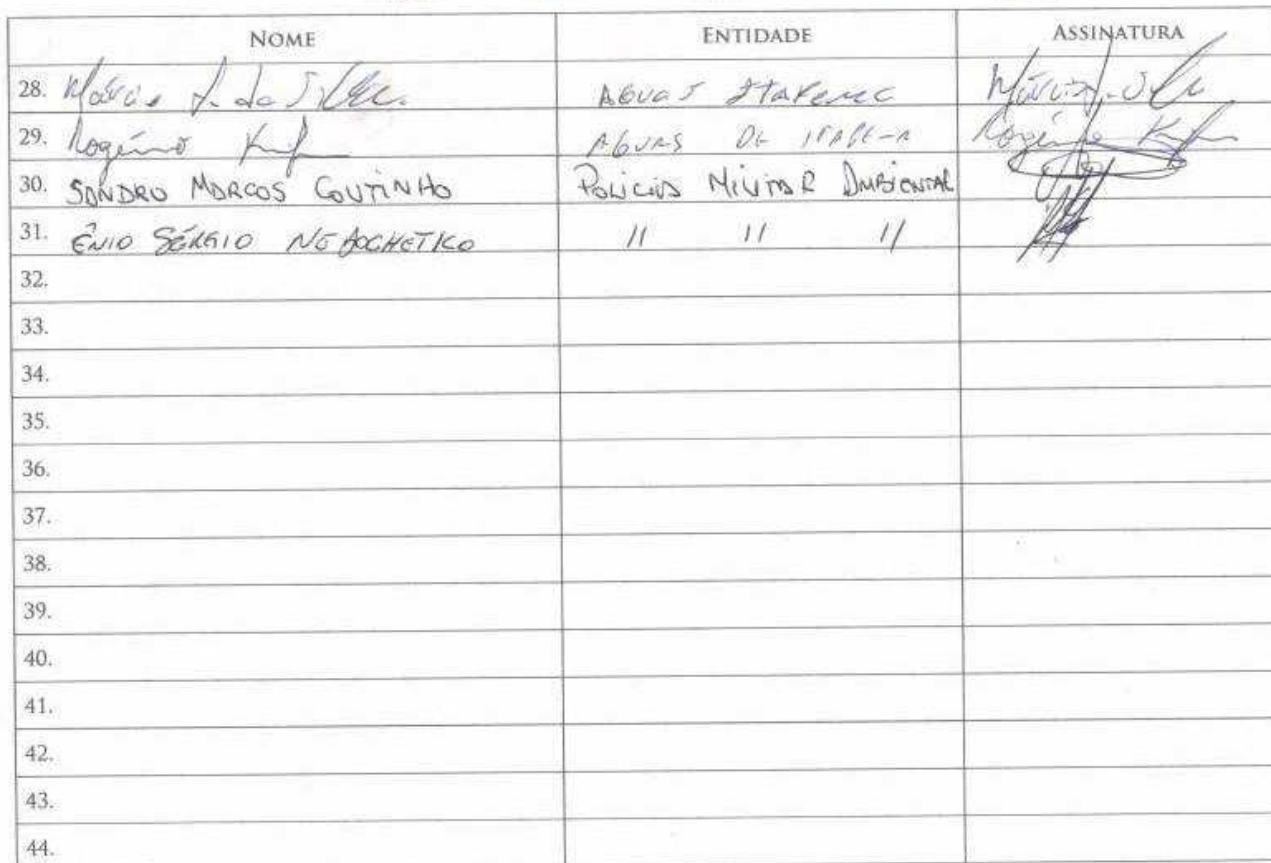 NOME ENTIDADE ASSINATURA
28. Márcio J. da Silva. AGUAS ITAPEMA Márcio J. Silva
29. Rogério AGUAS DE ITAPEMA Rogério
30. SANDRO MARCOS COUTINHO POLICIA MILITAR AMBIENTAL
31. ÊNIO SÉRGIO " " "
32.
33.
34.
35.
36.
37.
38.
39.
40.
41.
42.
43.
44.